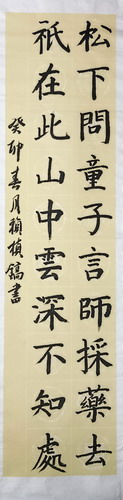 松下問童子言師採藥去
祇在此山中雲深不知處
癸卯春月楨鎬書